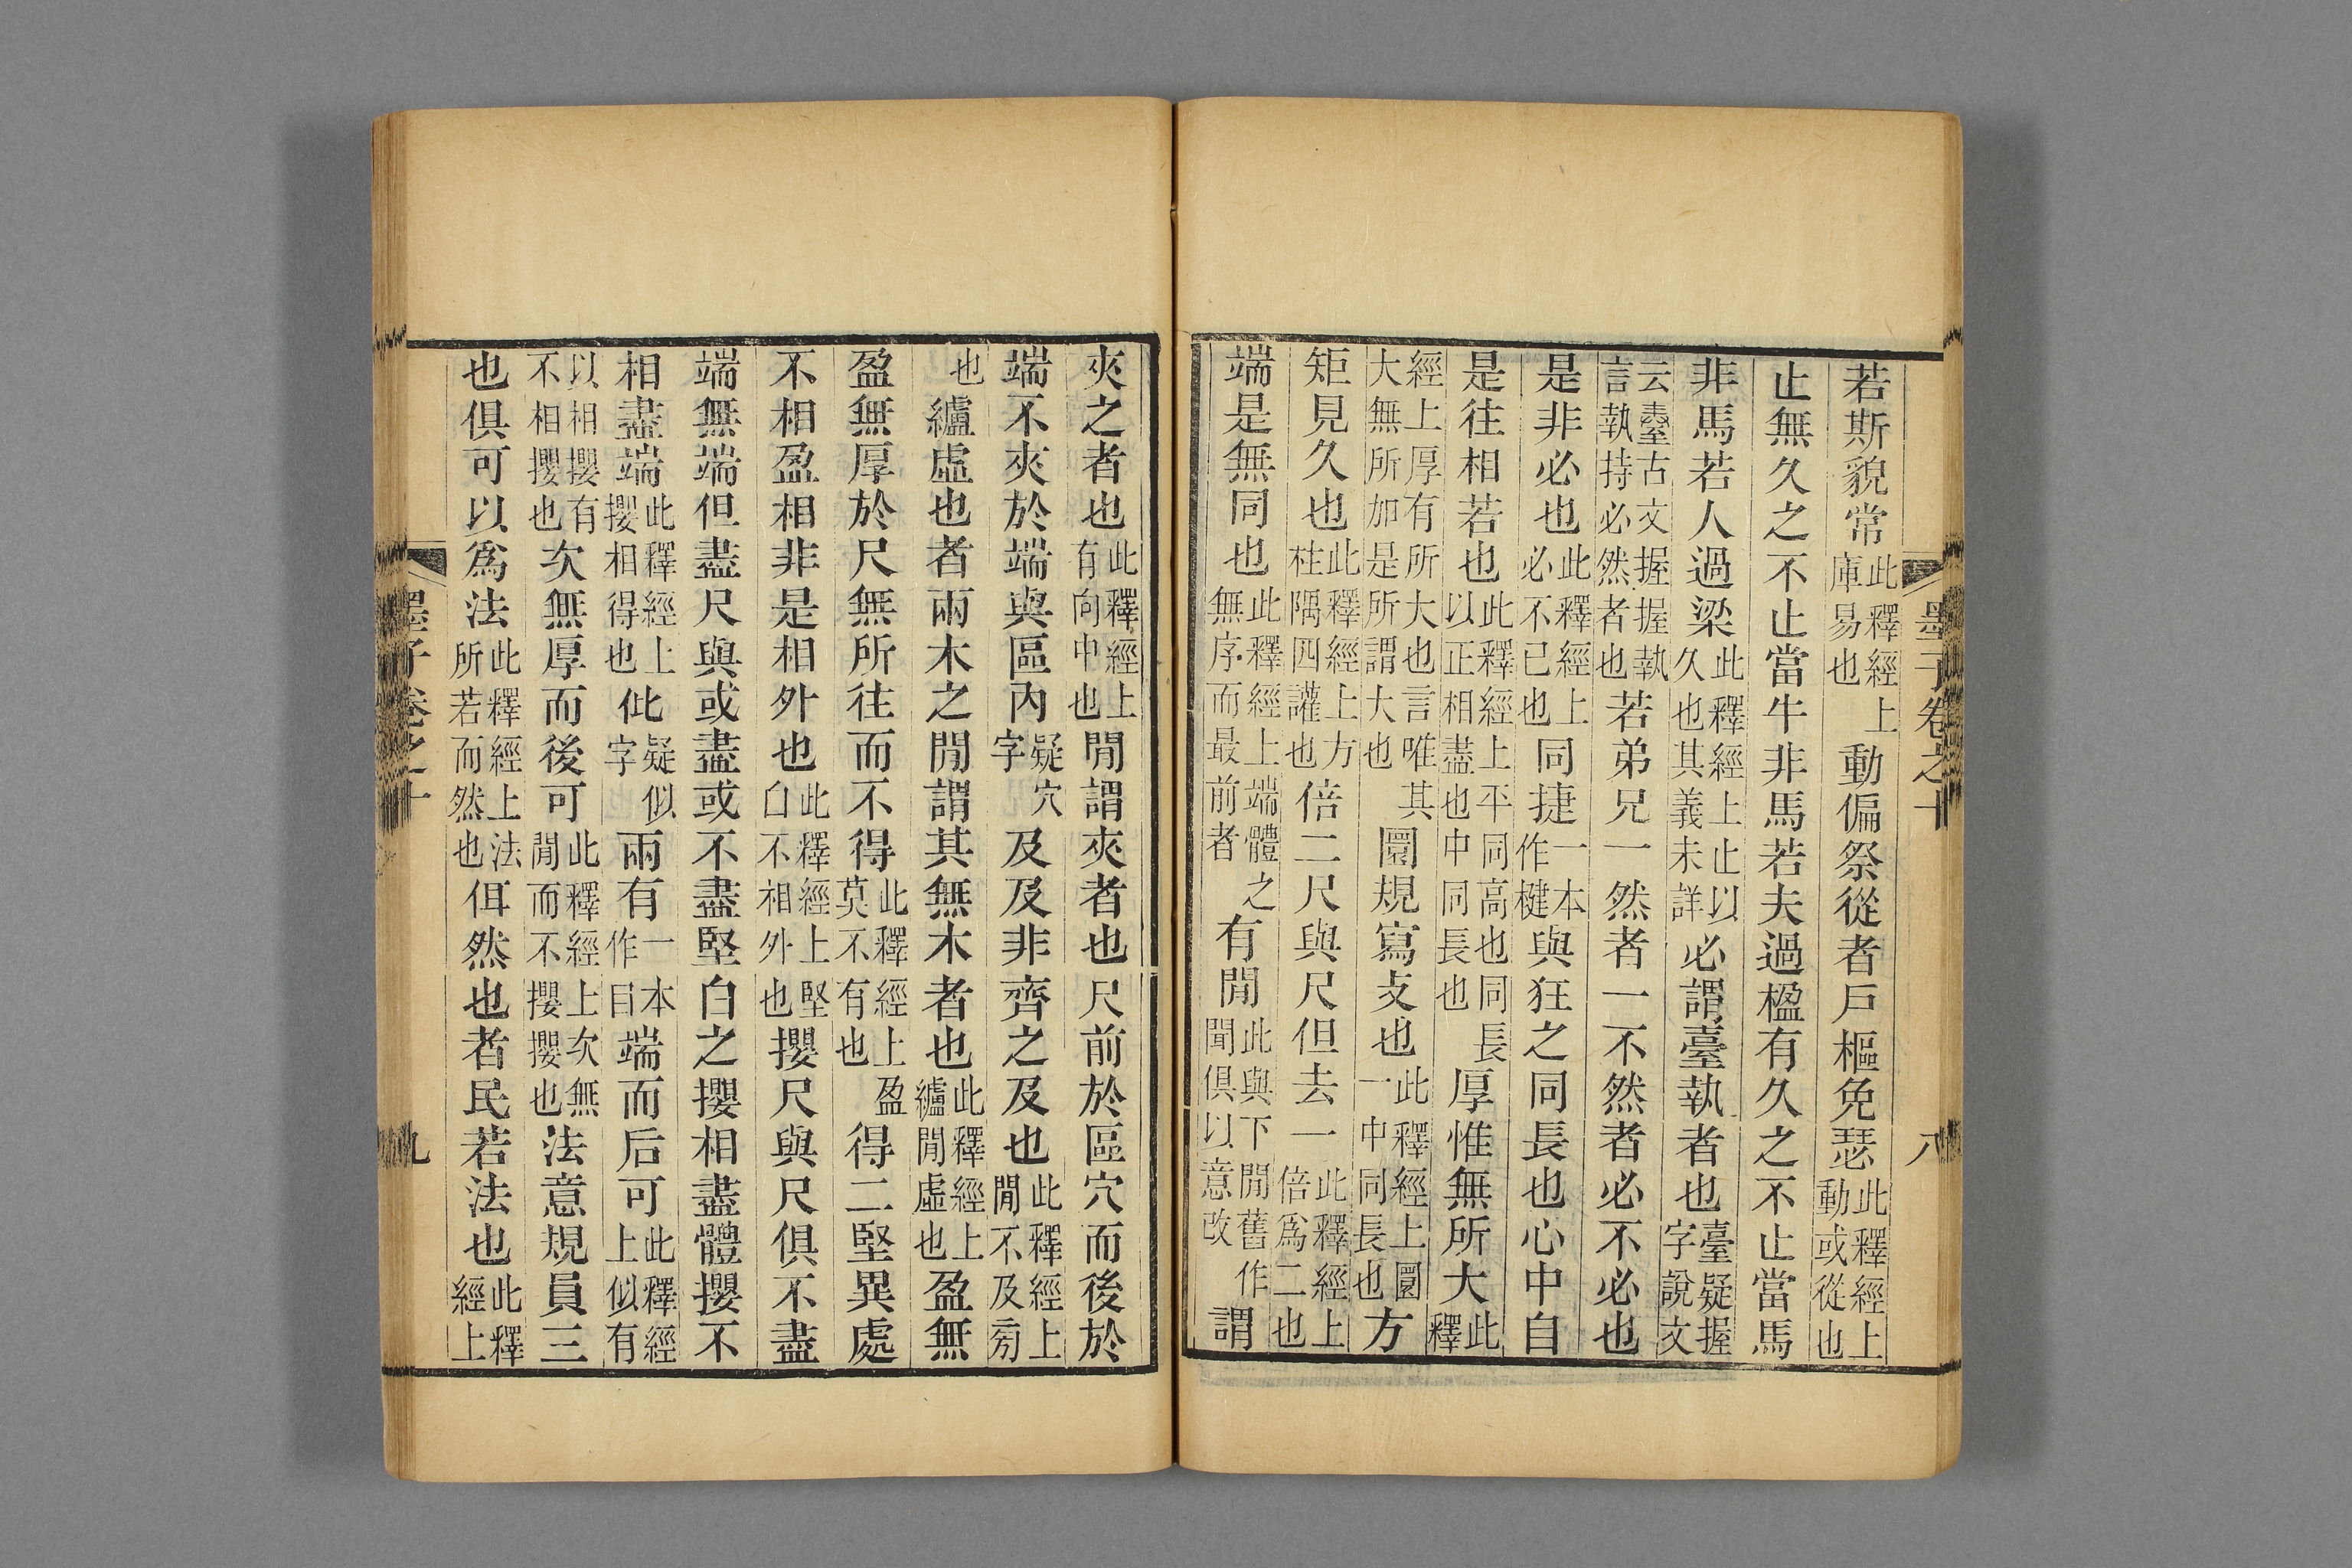 墨子卷之十 八
若斯貌常此釋經上庫易也動偏祭從者戶樞免瑟此釋經上動或從也
止無久之不止當牛非馬若夫過楹有久之不止當馬
非馬若人過梁此釋經上止以久也其義未詳必謂臺執者也臺疑握字說文
云古文握握執言執持必然者也若弟兄一然者一不然者必不必也
是非必也此釋經上必不已也同捷一本作楗與狂之同長也心中自
是往相若也此釋經上平同高也同長以正相盡也中同長也厚惟無所大此釋
經上厚有所大也言唯其大無所加是所謂大也圜規寫攴也此釋經上圜一中同長也方
矩見久也此釋經上方柱隅四讙也倍二尺與尺但去一此釋經上倍爲二也
端是無同也此釋經上端體之無序而最前者有閒此與下閒舊作聞俱以意改謂
夾之者也此釋經上有向中也閒謂夾者也尺前於區穴而後於
端不夾於端與區內疑穴字及及非齊之及也此釋經上閒不及旁
也纑虛也者兩木之閒謂其無木者也此釋經上纑閒虛也盈無
盈無厚於尺無所往而不得此釋經上盈莫不有也得二堅異處
不相盈相非是相外也此釋經上堅白不相外也攖尺與尺俱不盡
端無端但盡尺與或盡或不盡堅白之攖相盡體攖不
相盡端此釋經上攖相得也仳疑似字兩有一本作目端而后可此釋經上似有
以相攖有不相攖也次無厚而後可此釋經上次無閒而不攖攖也法意規員三
也俱可以爲法此釋經上法所若而然也佴然也者民若法也此釋經上
墨子卷之十 九